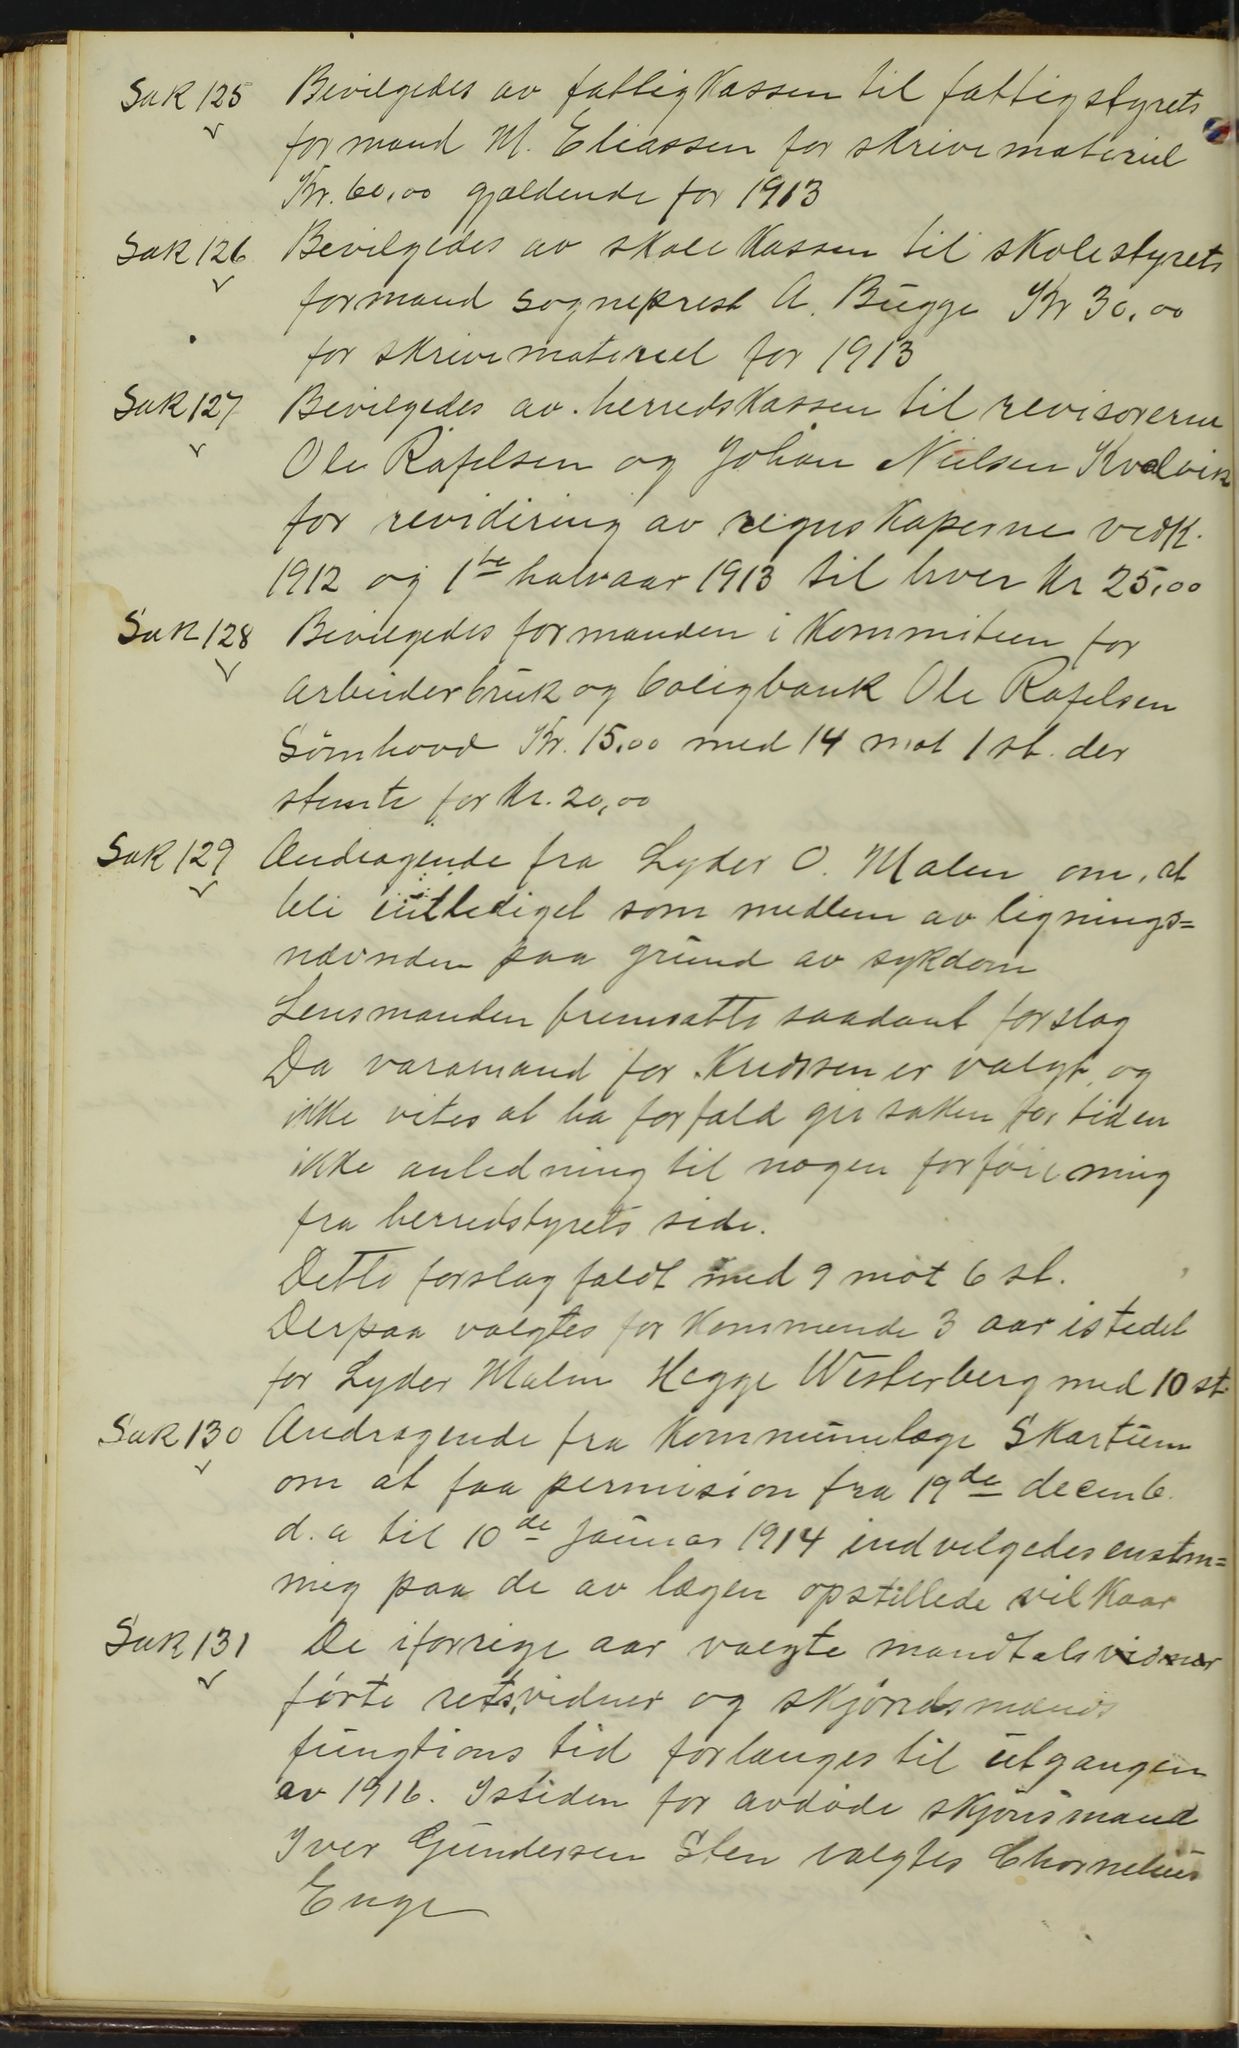 Sak 125 Bevilgedes av fattigkassen til fattigstyrets
formand M. Eliassen for skrivemateriel
Kr. 60,00 gjældende for 1913
Sak 126 Bevilgedes av skolekassen til skolestyrets
formand sogneprest A. Bugge Kr 30,00
for skrivemateriel for 1913
Sak 127 Bevilgedes av herredskassen til revisorerne
Ole Rafelsen og Johan Nielsen Kvalvik
for revidering av regnskaperne vedk.
1912 og 1ste halvaar 1913 til hver Kr 25,00
Sak 128 Bevilgedes formanden i Kommiteen for
arbeiderbruk og boligbank Ole Rafelsen
Sömhovd Kr. 15,00 med 14 mot 1 st. der
stemte for Kr. 20,00
Sak 129 Andragende fra Lyder O. Malen om, at
bli entlediget som medlem av lignings=
nævnden paa grund av sykdom
Lensmanden fremsatte saadant forslag
Da varamand for Kredsen er valgt og
ikke vites at ha forfald gir saken for tiden
ikke anledning til nogen forföiening
fra herredstyrets side.
Dette forslag faldt med 9 mot 6 st.
Derpaa valgtes for Kommende 3 aar istedet
for Lyder Malen Hegge Westerberg med 10 st.
Sak 130 Andragende fra Kommunelæge Skartum
om at faa permision fra 19de decemb.
d.a til 10de Januar 1914 indvilgedes enstm=
mig paa de av lægen opstillede vilkaar
Sak 131 De iforrige aar valgte mandtalsvidner
förte retsvidner og skjöndsmænds
fungtions tid forlænges til utgangen
av 1916. Isteden for avdöde skjönsmand
Iver Gundersen Sten valgtes Chornelius
Enge